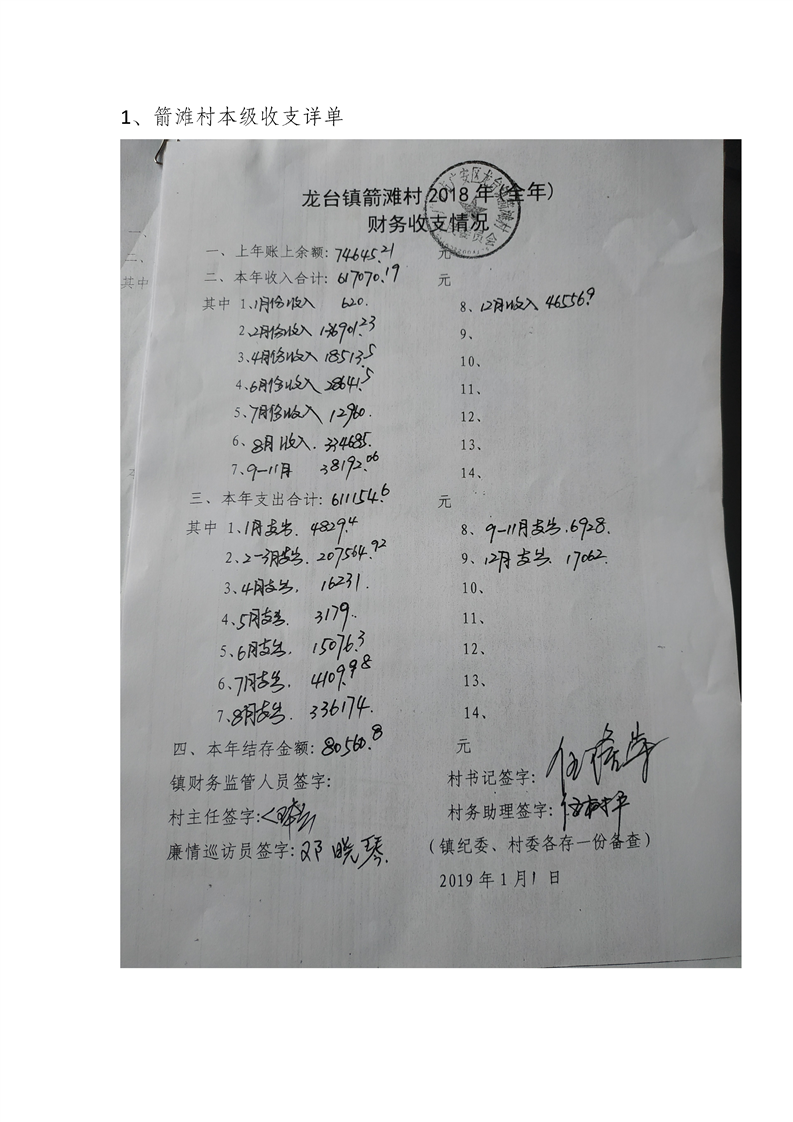 1、箭滩村本级收支详单
龙台镇箭滩村2018年(全年)
财务收支情况
一、上年账上余额: 74645.21 元
二、本年收入合计: 617070.19 元
其中 1、1月份收入 620. 8、12月收入 46556.9
2、2月份收入 136901.23 9、
3、4月份收入 18513.5 10、
4、6月份收入 28641.5 11、
5、7月份收入 12960. 12、
6、8月收入. 334685. 13、
7、9-11月 38192.06 14、
三、本年支出合计: 611154.6 元
其中 1、1月支出. 4829.4 8、9-11月支出.6928.
2、2-3月支出. 207564.92 9、12月支出. 17062.
3、4月支出. 16231. 10、
4、5月支出. 3179. 11、
5、6月支出. 15076.3 12、
6、7月支出. 4109.98 13、
7、8月支出. 336174. 14、
四、本年结存金额: 80560.8 元
镇财务监管人员签字: 村书记签字:
村主任签字: 村务助理签字:
廉情巡访员签字: 邓晓琴 (镇纪委、村委各存一份备查)
2019年1月1日